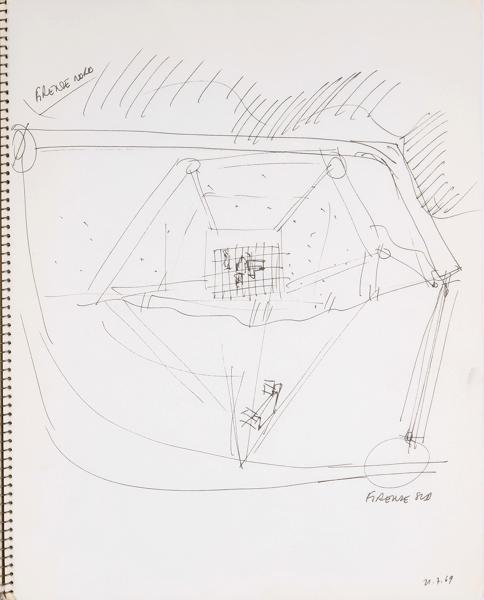 FIRENZE NORD
FIRENZE SUD
21.7.69